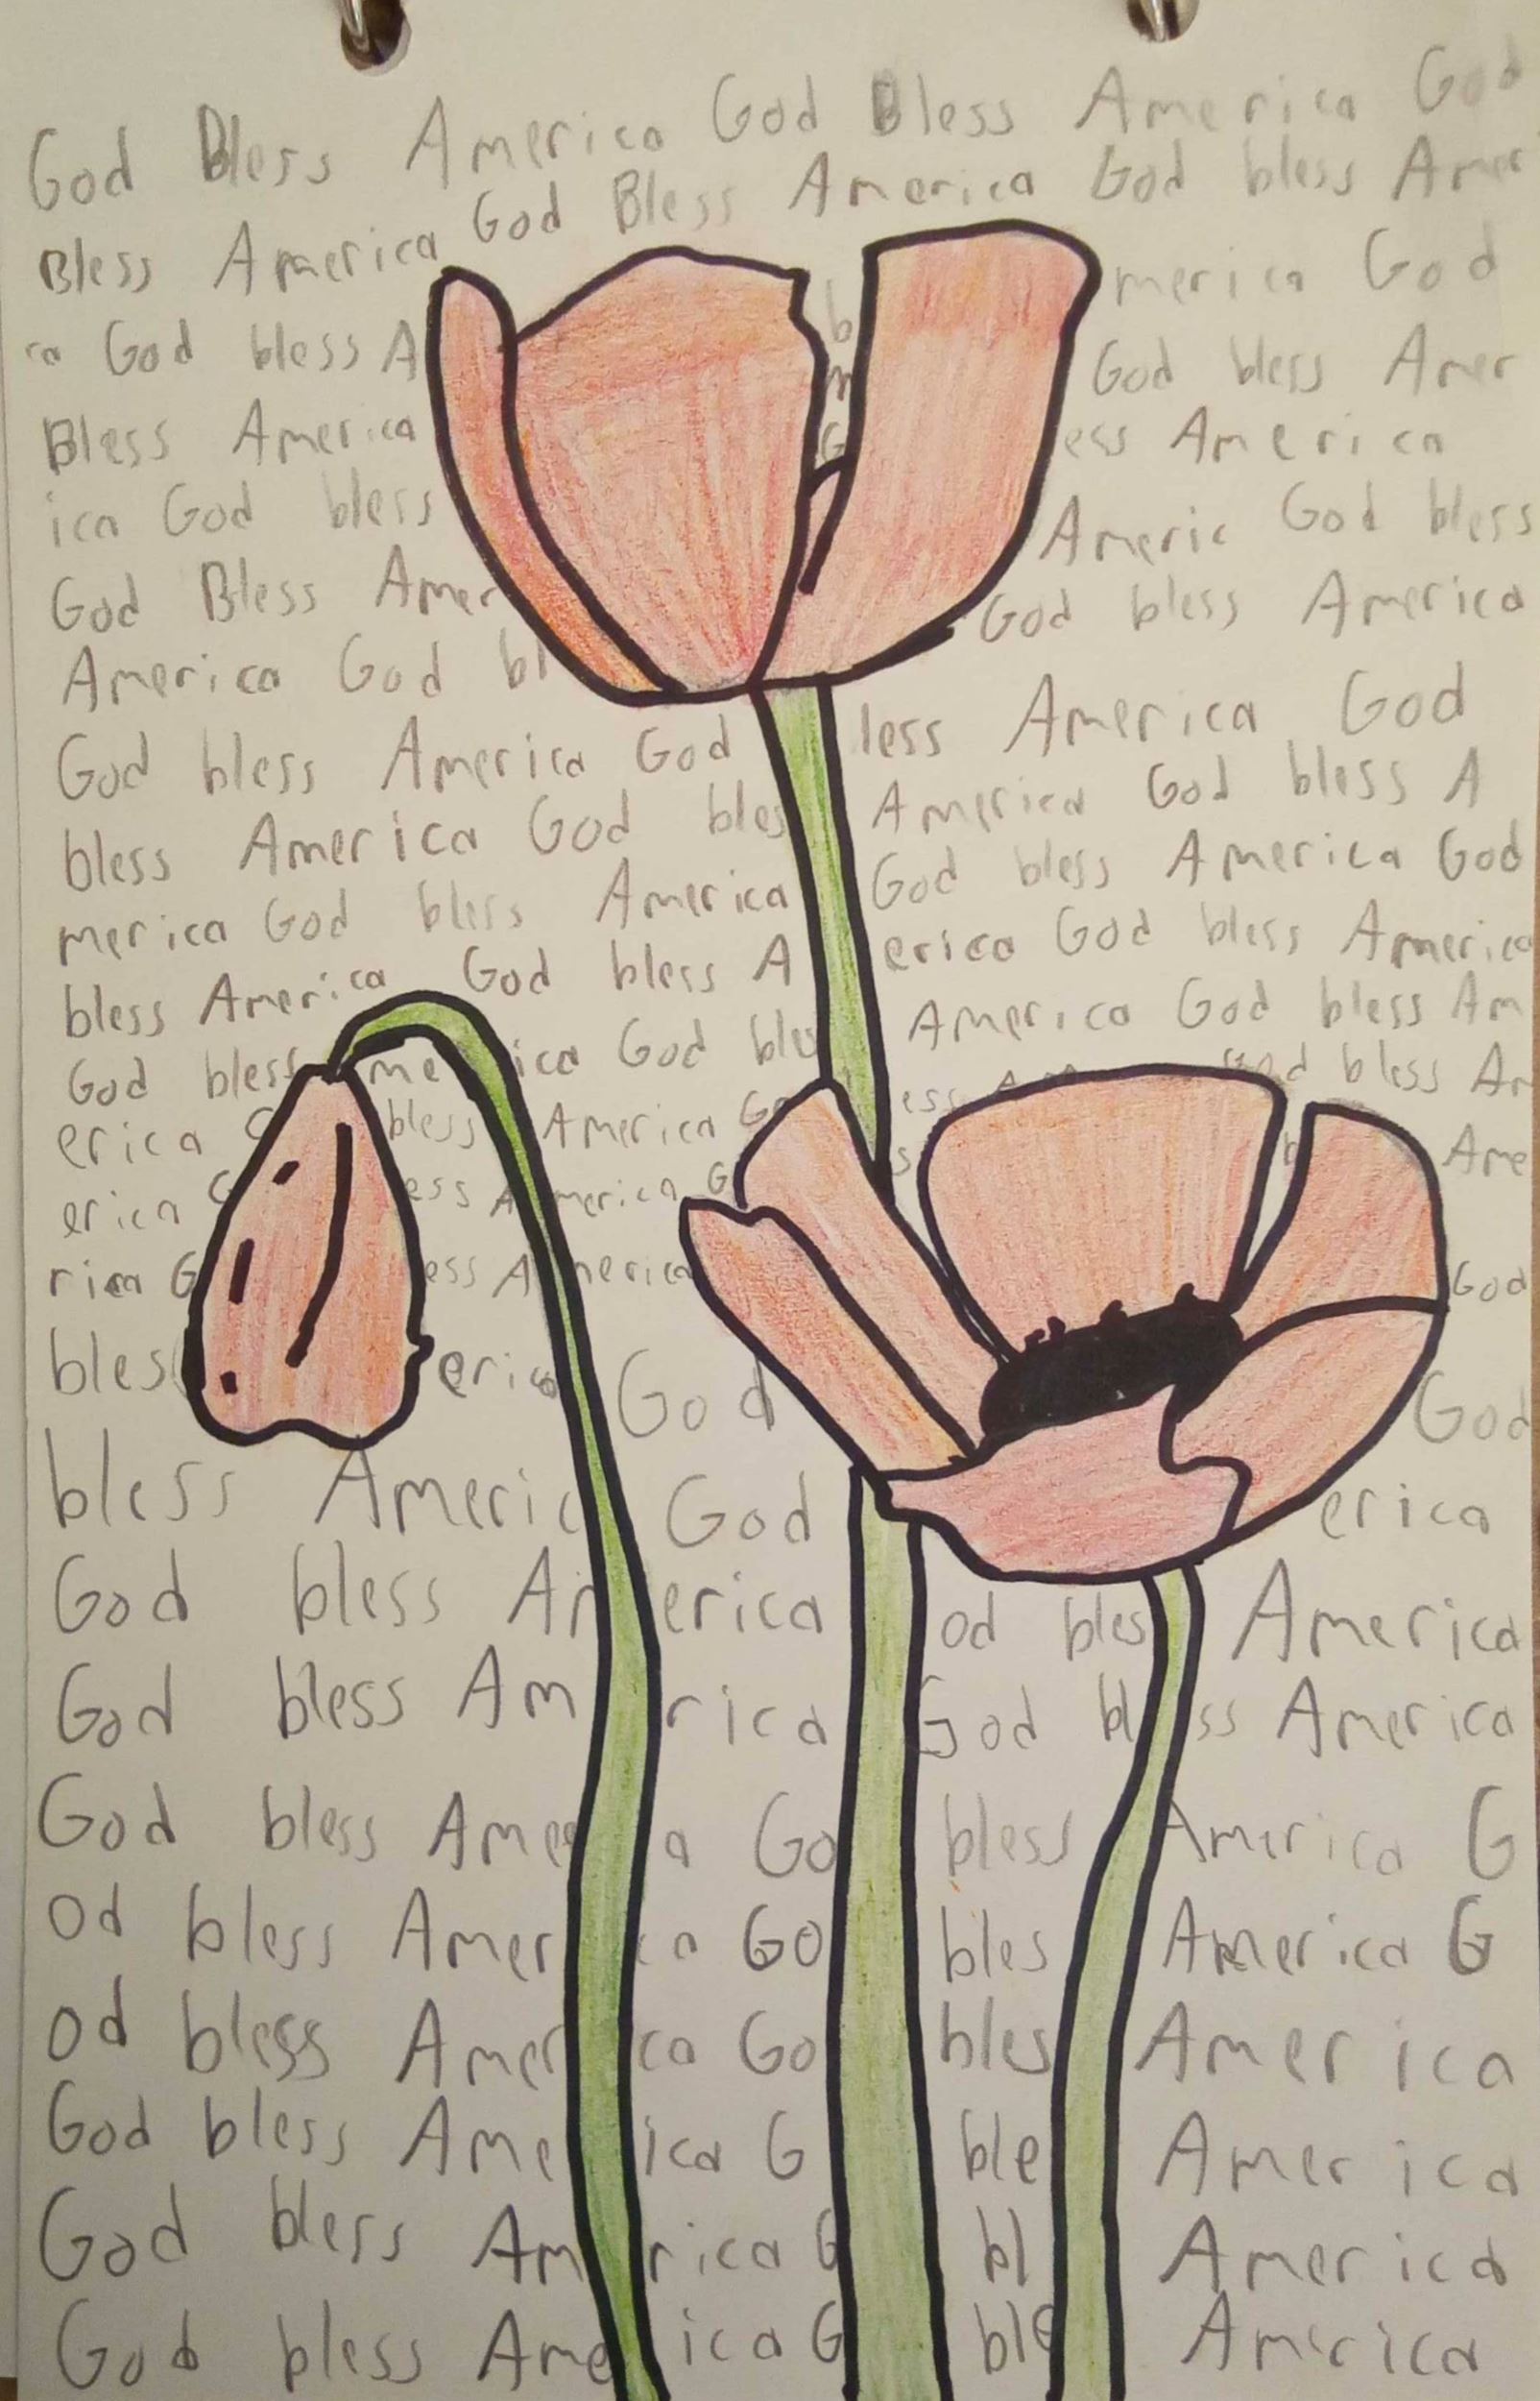 God Bless America God Bless America God
Bless America God Bless America God bless Amer
ca God bless A b merica God
Bless America m God bless Amer
ica God bless G ess America
God Bless Amer Americ God bless
America God bl God bless America
God bless America God less America God
bless America God bles America God bless A
merica God bless America God bless America God
bless America God bless A erica God bless America
God bless me ica God bles America God bless Am
erica G bless America Go ess Am God bless Am
erica G ess A merica G s Ame
rica G ess A merica God
bles erica God d God
bless Americ God erica
God bless Am erica od bles America
God bless Am rica God bl ss America
God bless Ame a Go bless America G
od bless Amer ca Go bles America G
od bless Amer ca Go bles America
God bless Ame ica G ble America
God bless Am rica G bl America
God bless Ame ica G ble America